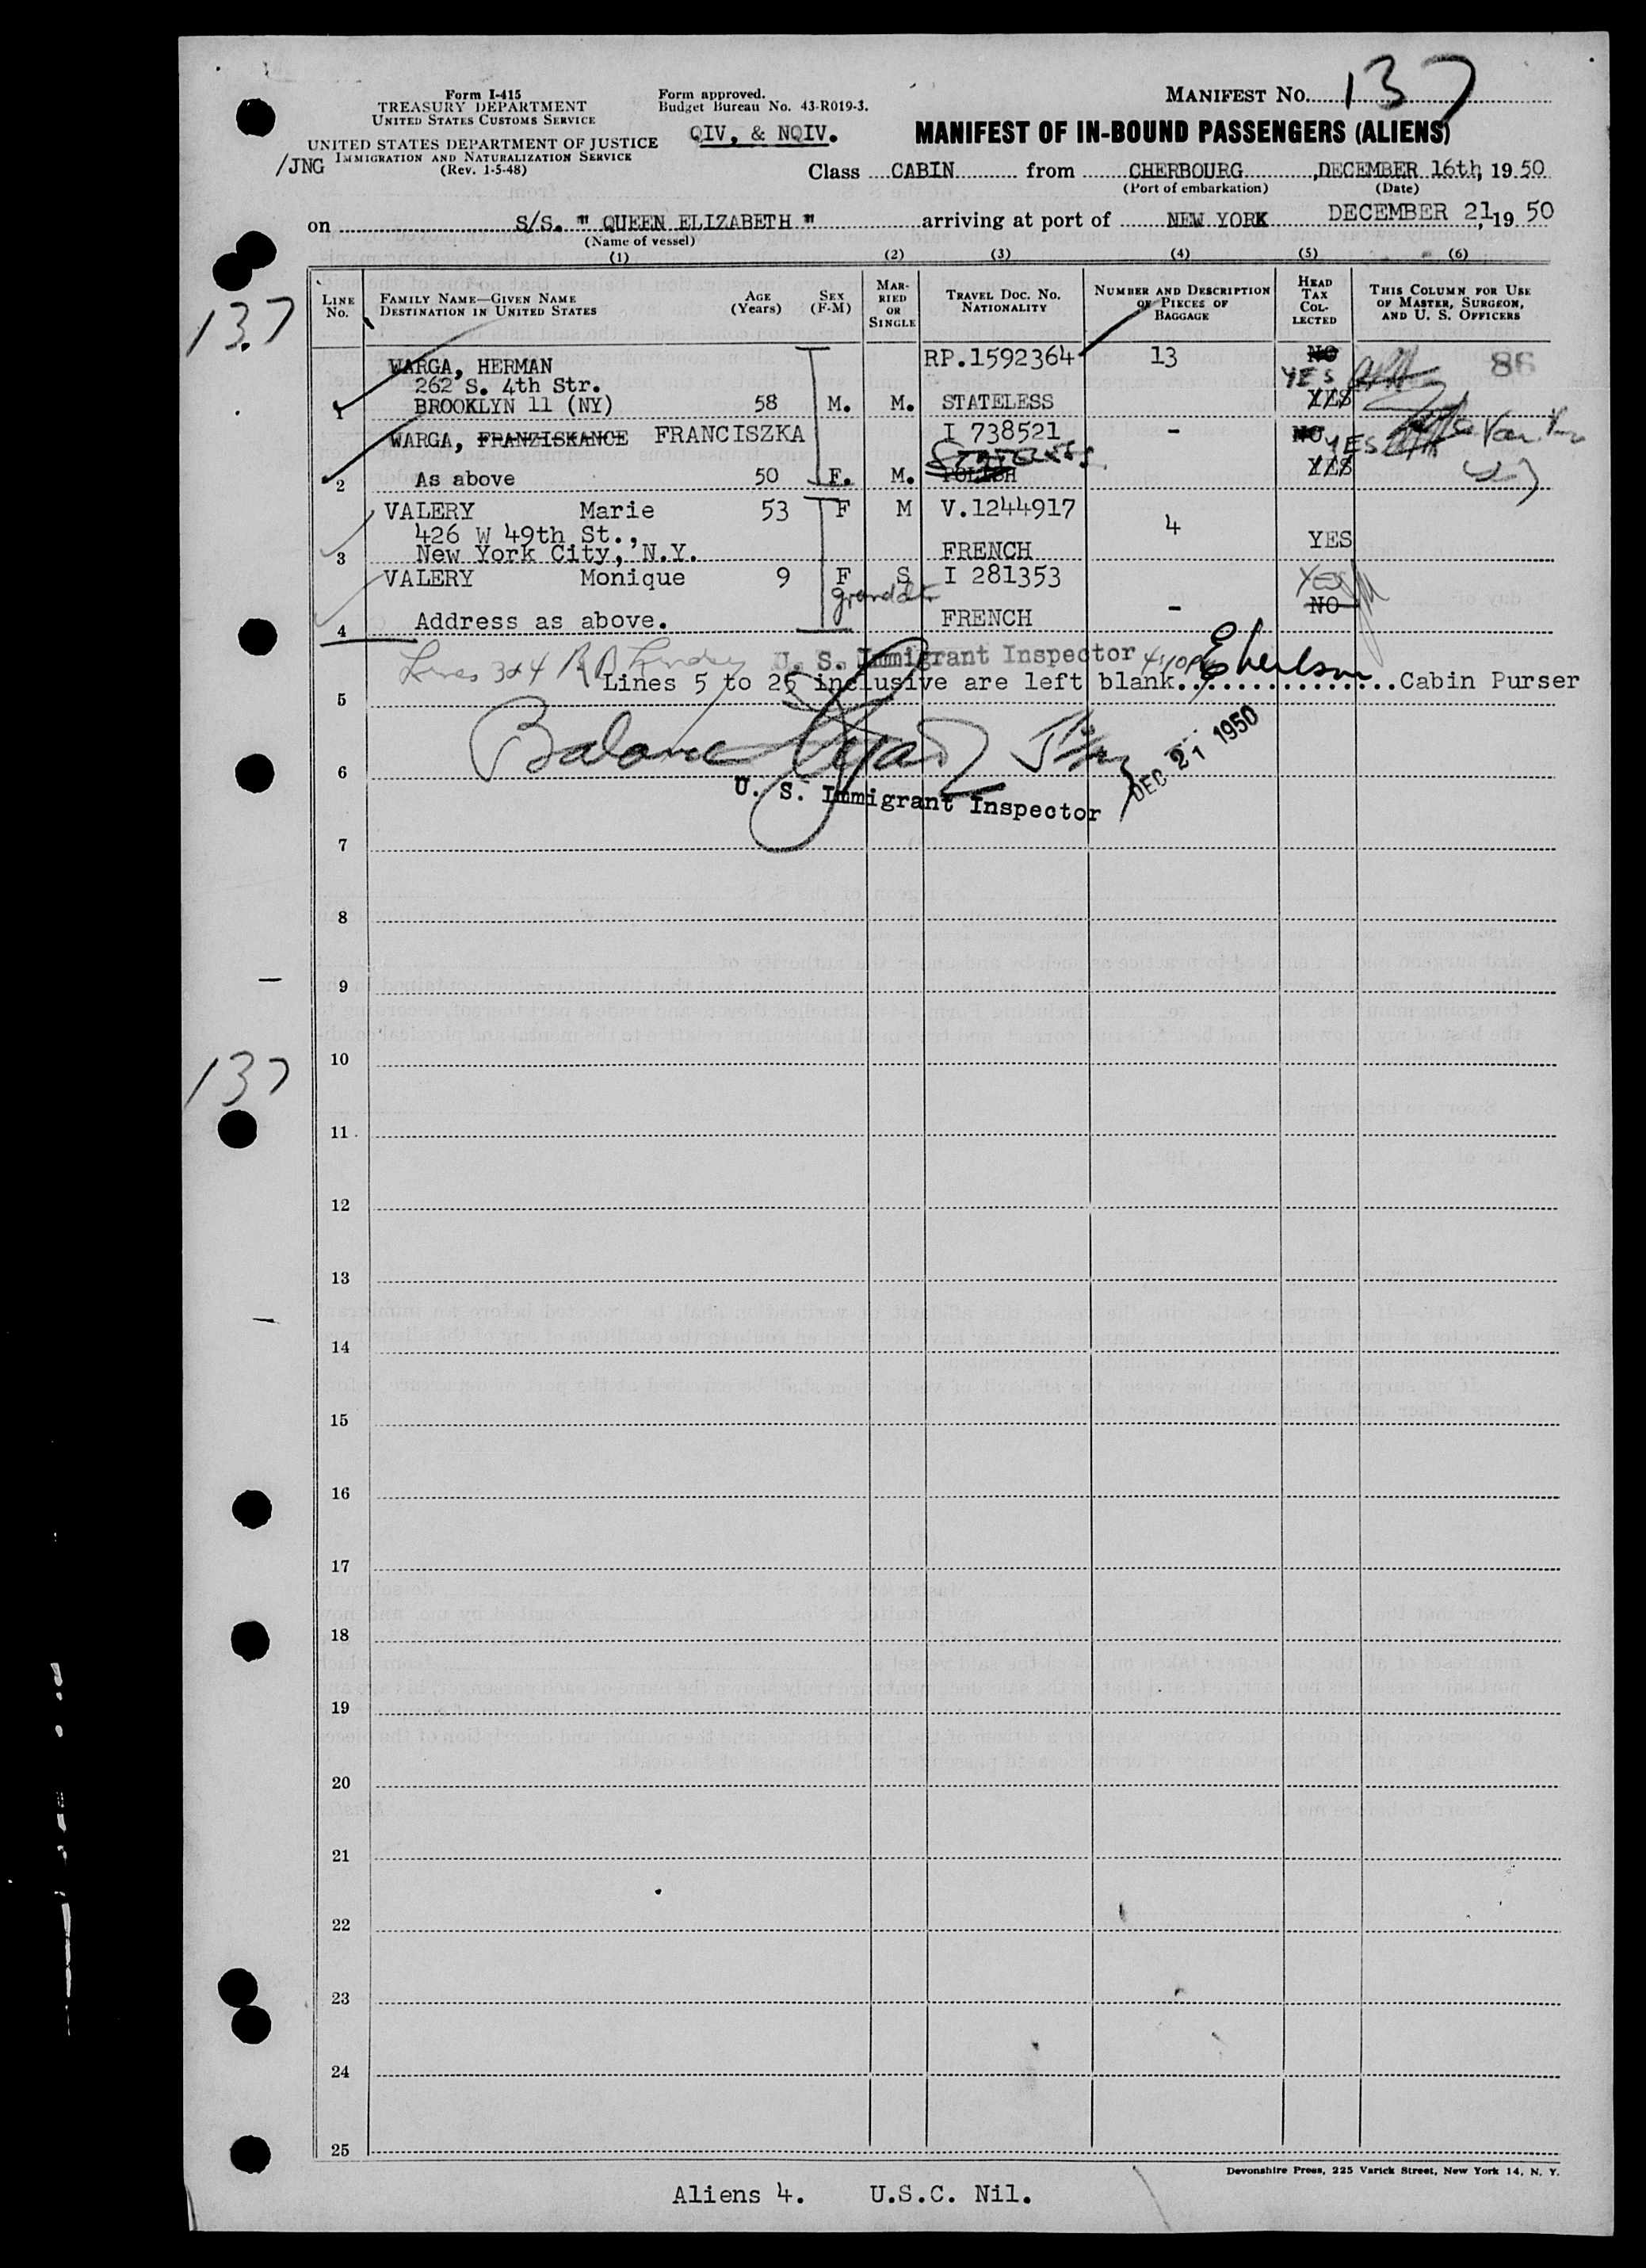 MANIFEST NO. 137
Form I-415
TREASURY DEPARTMENT
UNITED STATES CUSTOMS SERVICE
UNITED STATES DEPARTMENT OF JUSTICE
IMMIGRATION AND NATURALIZATION SERVICE
(Rev. 1-5-48)
/JNG
Form approved.
Budget Bureau No. 43-R019-3.
QIV, & NQIV.
MANIFEST OF IN-BOUND PASSENGERS (ALIENS)
Class CABIN from CHERBOURG, DECEMBER 16th, 19 50
(Port of embarkation) (Date)
on S/S. " QUEEN ELIZABETH " arriving at port of NEW YORK DECEMBER 21, 19 50
(Name of vessel)
(1) (2) (3) (4) (5) (6)
LINE NO.
FAMILY NAME—GIVEN NAME
DESTINATION IN UNITED STATES
AGE (YEARS)
SEX (F-M)
MARRIED OR SINGLE
TRAVEL DOC. NO.
NATIONALITY
NUMBER AND DESCRIPTION OF PIECES OF BAGGAGE
HEAD TAX COLLECTED
THIS COLUMN FOR USE OF MASTER, SURGEON, AND U. S. OFFICERS
137
WARGA, HERMAN RP.1592364 13 NO 86
262 S. 4th Str. YES
1 BROOKLYN 11 (NY) 58 M. M. STATELESS YES
WARGA, FRANZISKANCE FRANCISZKA I 738521 - NO YES
STATELESS
2 As above 50 F. M. POLISH YES
VALERY Marie 53 F M V.1244917
426 W 49th St., 4
3 New York City, N.Y. FRENCH YES
VALERY Monique 9 F S I 281353 YES
granddtr
4 Address as above. FRENCH - NO
Lines 3&4 U. S. Immigrant Inspector
5 Lines 5 to 25 inclusive are left blank. Cabin Purser
6 Balance
DEC 21 1950
U. S. Immigrant Inspector
7
8
9
10
137
11
12
13
14
15
16
17
18
19
20
21
22
23
24
25
Devonshire Press, 225 Varick Street, New York 14, N. Y.
Aliens 4. U.S.C. Nil.